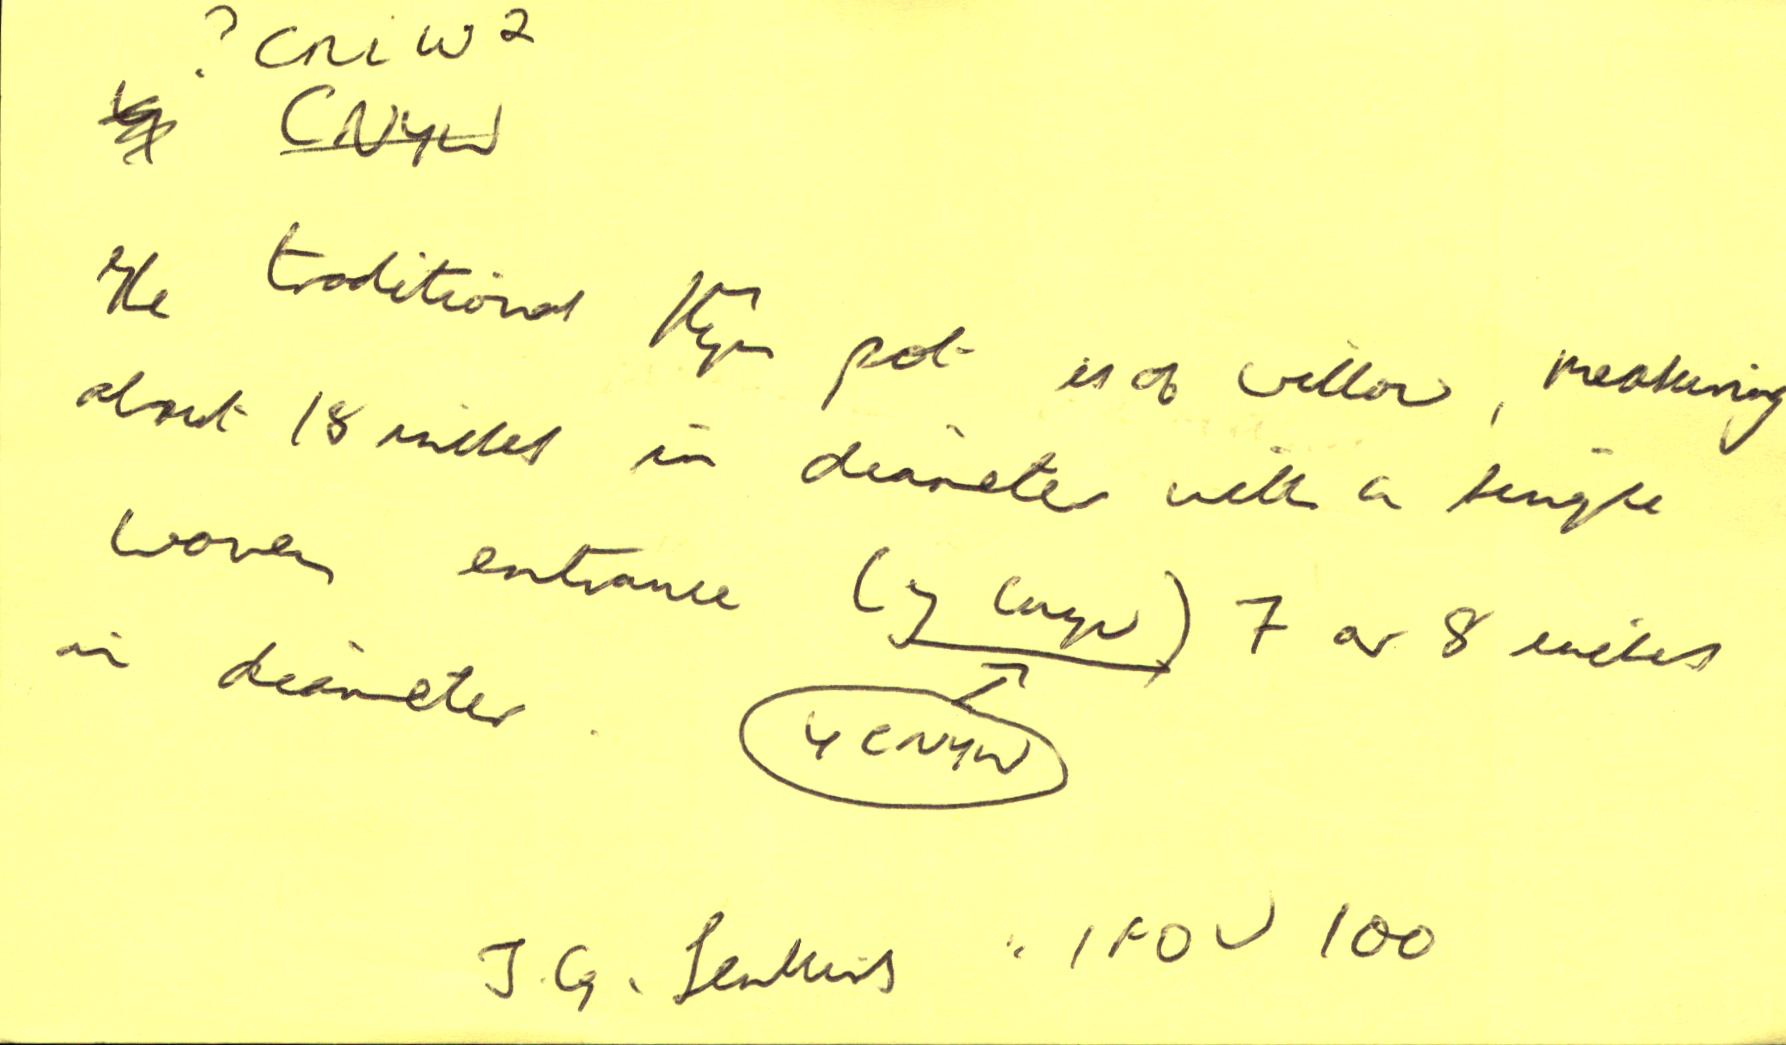 ? CNIW 2
CNYW
The traditional Llŷn pot is of willow, measuring
about 18 inches in diameter with a single
woven entrance (y cnyw) 7 or 8 inches
in diameter.
Y CNYW
J.G. Jenkins : 100